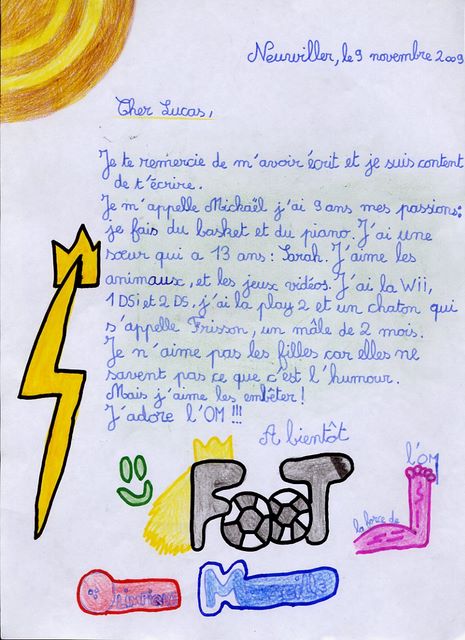 Neuwiller, le 9 novembre 2009
Cher Lucas,
Je te remercie de m'avoir écrit et je suis content
de t'écrire.
Je m'appelle Mickaël j'ai 9 ans mes passions:
je fais du basket et du piano. J'ai une
sœur qui a 13 ans : Sarah. J'aime les
animaux, et les jeux vidéos. J'ai la Wii,
1 DSi et 2 DS. j'ai la play 2 et un chaton qui
s'appelle Frisson, un mâle de 2 mois.
Je n'aime pas les filles car elles ne
savent pas ce que c'est l'humour.
Mais j'aime les embêter!
J'adore l'OM !!!
A bientôt
FOOT
la force de
l'OM
Olimpique
Marseille